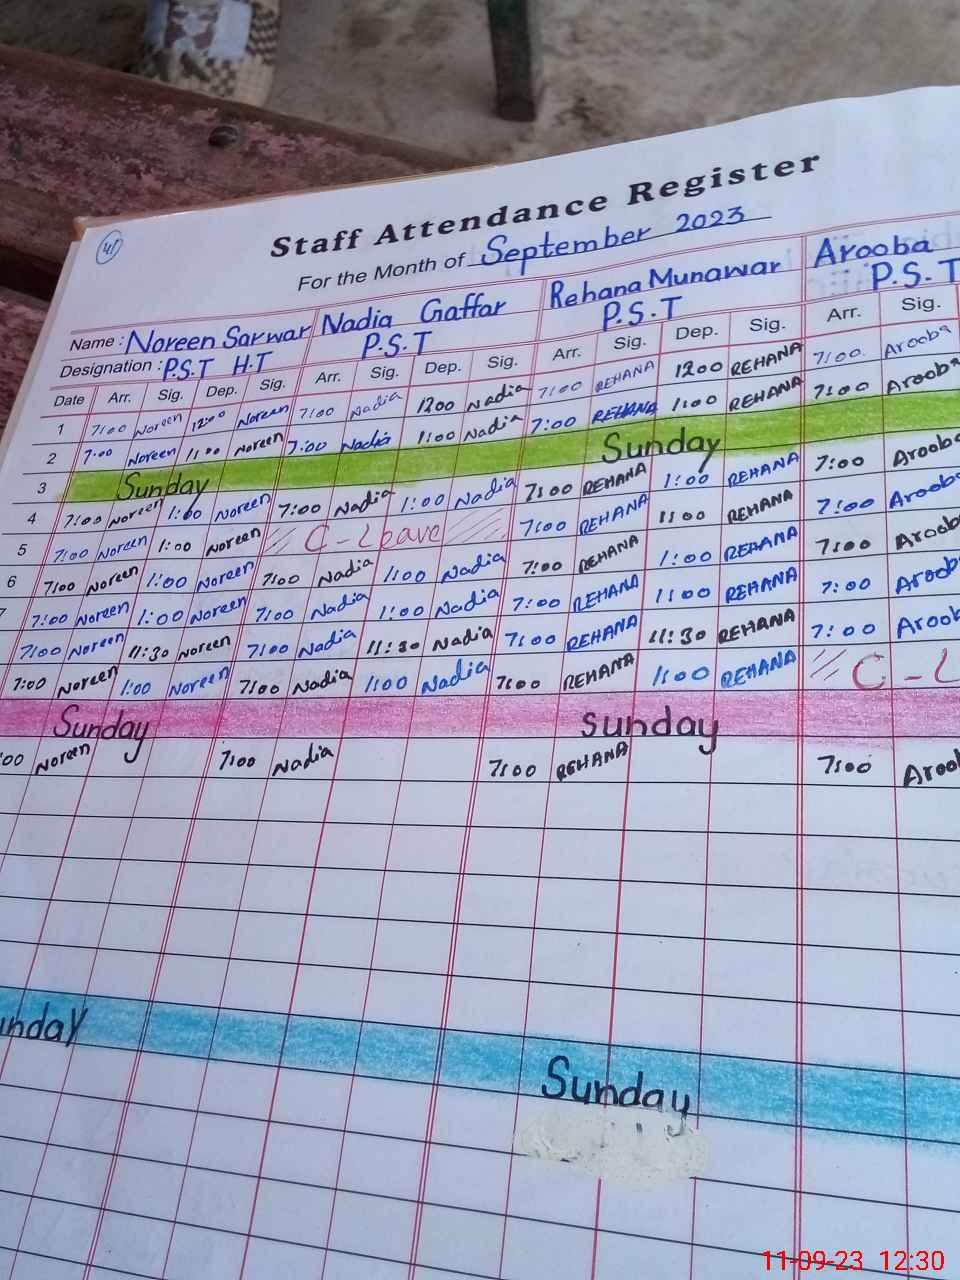 41
Staff Attendance Register
For the Month of September 2023
Name : Noreen Sarwar Nadia Gaffar Rehana Munawar Arooba
Designation : P.S.T H.T P.S.T P.S.T P.S.T
Date Arr. Sig. Dep. Sig. Arr. Sig. Dep. Sig. Arr. Sig. Dep. Sig. Arr. Sig.
1 7:00 Noreen 12:00 Noreen 7:00 Nadia 1200 Nadia 7:00 REHANA 1200 REHANA 7:00 Arooba
2 7:00 Noreen 1:00 Noreen 7:00 Nadia 1:00 Nadia 7:00 REHANA 1:00 REHANA 7:00 Arooba
3 Sunday Sunday
4 7:00 Noreen 1:00 Noreen 7:00 Nadia 1:00 Nadia 7:00 REHANA 1:00 REHANA 7:00 Arooba
5 7:00 Noreen 1:00 Noreen C-Leave 7:00 REHANA 1:00 REHANA 7:00 Arooba
6 7:00 Noreen 1:00 Noreen 7:00 Nadia 1:00 Nadia 7:00 REHANA 1:00 REHANA 7:00 Arooba
7 7:00 Noreen 1:00 Noreen 7:00 Nadia 1:00 Nadia 7:00 REHANA 1:00 REHANA 7:00 Aroob
7:00 Noreen 11:30 Noreen 7:00 Nadia 11:30 Nadia 7:00 REHANA 11:30 REHANA 7:00 Aroob
7:00 Noreen 1:00 Noreen 7:00 Nadia 1:00 Nadia 7:00 REHANA 1:00 REHANA C-L
Sunday Sunday
:00 Noreen 7:00 Nadia 7:00 REHANA 7:00 Aroob
unday Sunday
11-09-23 12:30